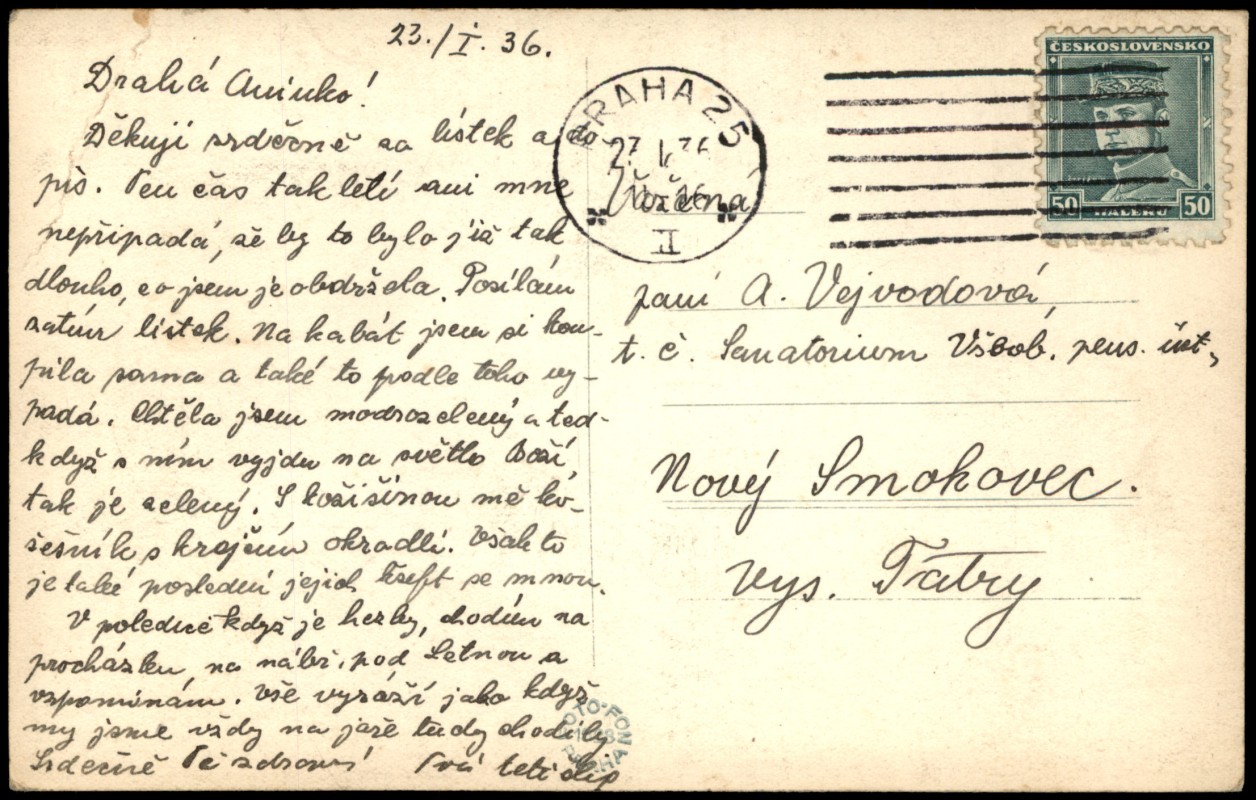 23./I. 36.
Drahá Aninko!
Děkuji srdečně za lístek a do
pis. Ten čas tak letí ani mne
nepřipadá, že by to bylo již tak
dlouho, co jsem je obdržela. Posílám
zatím lístek. Na kabát jsem si kou-
pila sama a také to podle toho vy-
padá. Chtěla jsem modrozelený a teď
když s ním vyjdu na světlo Boží,
tak je zelený. S kožišinou mě ko-
žešník s krejčím okradli. Však to
je také poslední jejich kšeft se mnou.
V poledne když je hezky, chodím na
procházku, na nábř. pod Letnou a
vzpomínám. Vše vyráží jako když
my jsme vždy na jaře tudy chodily
Srdečně Tě zdraví Tvá
PRAHA 25
II
ČESKOSLOVENSKO
50 HALÉŘŮ 50
paní A. Vejvodová,
t. č. Sanatorium Všeob. pens. úst,
Nový Smokovec.
Vys. Tatry